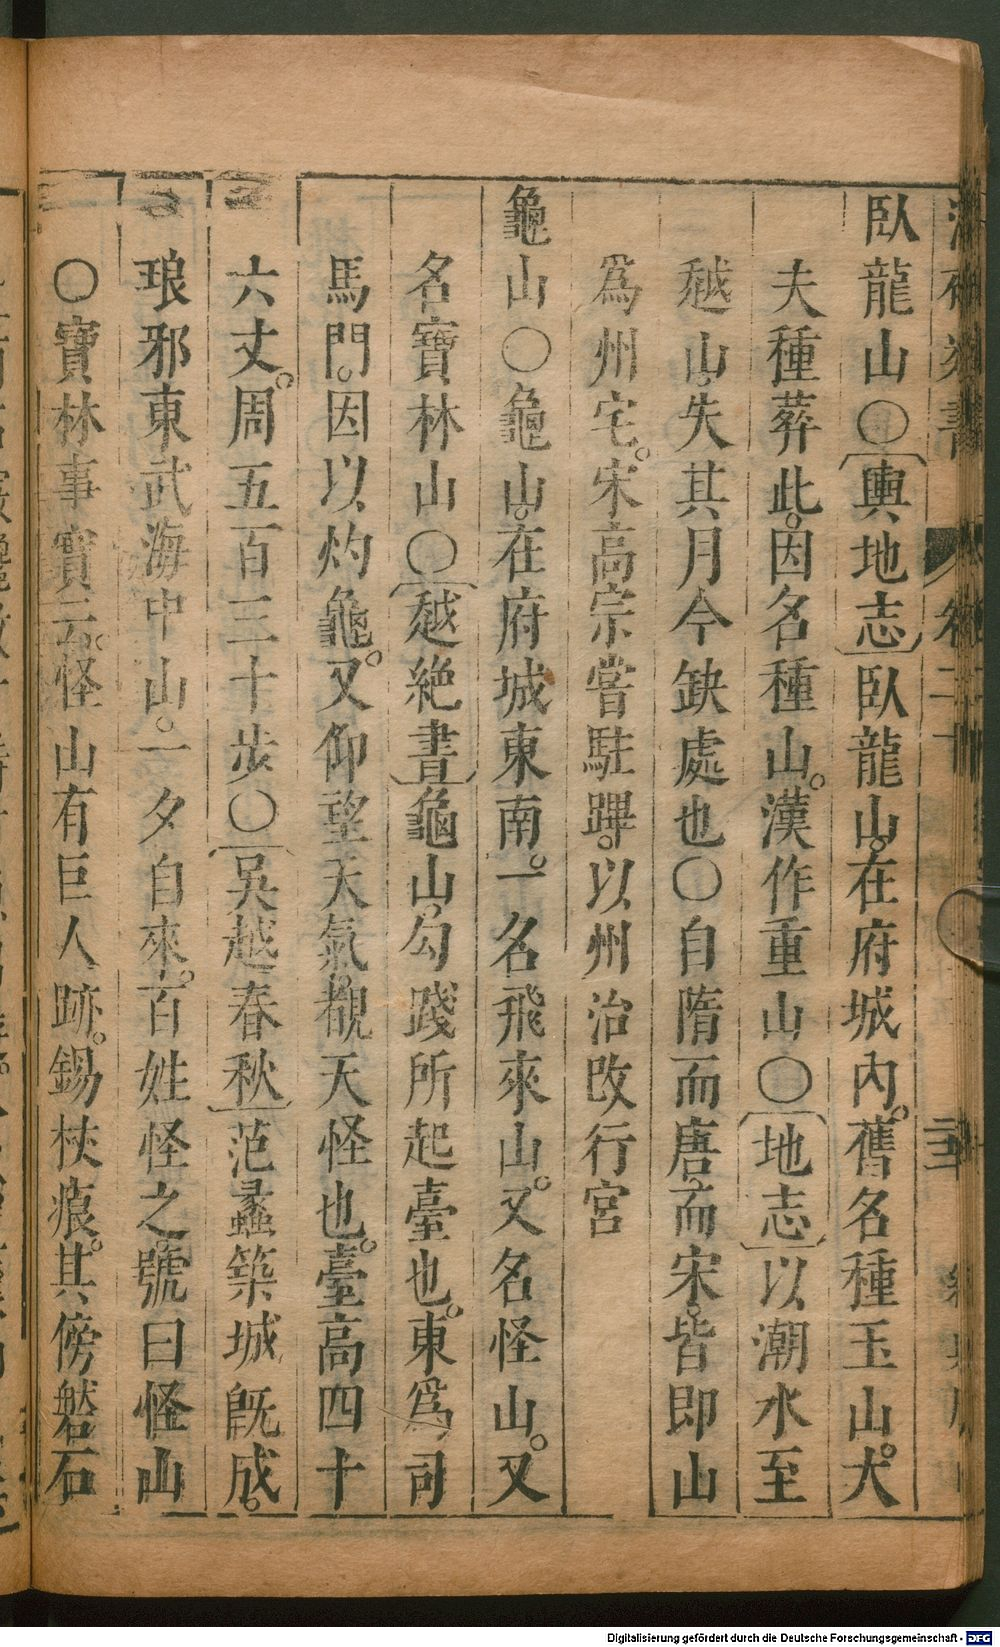 臥龍山○輿地志臥龍山在府城內。舊名種玉山。大
夫種葬此。因名種山。漢作重山○地志以潮水至
越山。失其月今缺處也○自隋而唐而宋。皆即山
爲州宅。宋高宗嘗駐蹕。以州治改行宮
龜山○龜山。在府城東南。一名飛來山。又名怪山。又
名寶林山○越絕書龜山。勾踐所起臺也。東爲司
馬門。因以灼龜。又仰望天氣。覩天怪也。臺高四十
六丈。周五百三十步○吳越春秋范蠡築城既成。
琅邪東武海中山。一夕自來。百姓怪之。號曰怪山
○寶林事實云。怪山有巨人跡。錫杖痕。其傍磐石
卷二十
Digitalisierung gefördert durch die Deutsche Forschungsgemeinschaft - DFG